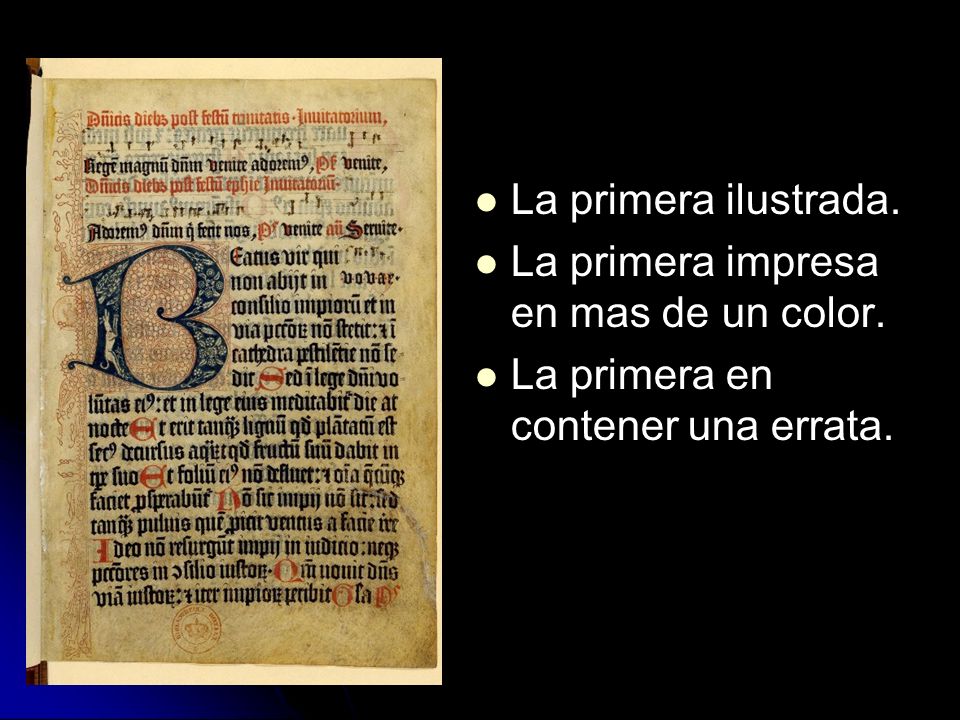 Dñicis diebȝ post festũ trinitatis. Inuitatorium,
Regẽ magnũ dñm venite adoremꝰ, Pẽ venite,
Dñicis diebȝ post festũ ephie Inuitatoriũ.
Adoremꝰ dñm q̃ fecit nos, Pẽ venite añ Seruite.
Beatus vir qui
non abijt in
consilio impiorũ et in
via pctõꝝ nõ stetit: ⁊ ĩ
cathedra pestilẽtie nõ se
dit Sed ĩ lege dñi vo
lũtas eiꝰ: et in lege eius meditabit᷑ die at
nocte Et erit tanqȝ lignũ qđ plãtatũ est
secꝰ decursus aqȝ: qđ fructũ suũ dabit in
tꝑe suo Et foliũ eiꝰ nõ defluet: ⁊ oĩa q̃cũqȝ
faciet ꝓsperabũt᷑ Nõ sic impij nõ sic: sed
tanqȝ puluis quẽ ꝓicit ventus a facie tre
Ideo nõ resurgũt impij in iudicio: neqȝ
pctõres in ↄsilio iustoꝝ. Qm̃ nouit dñs
viã iustoꝝ: ⁊ iter impioꝝ peribit
La primera ilustrada.
La primera impresa
en mas de un color.
La primera en
contener una errata.